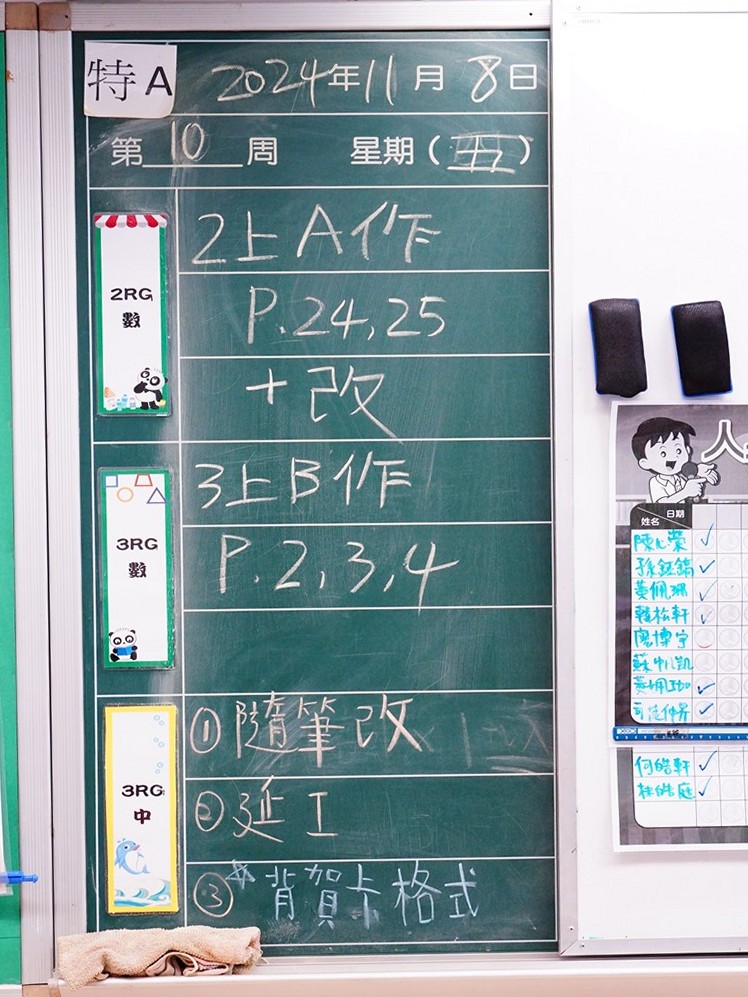 特A
2024年11月8日
第10周 星期(五)
2RG
數
2上A作
P.24,25
+改
3RG
數
3上B作
P.2,3,4
3RG
中
①隨筆改
②延工
③*背賀卡格式
人
日期
姓名
黃佩珊
韓松軒
廖博宇
何皓軒
林皓庭